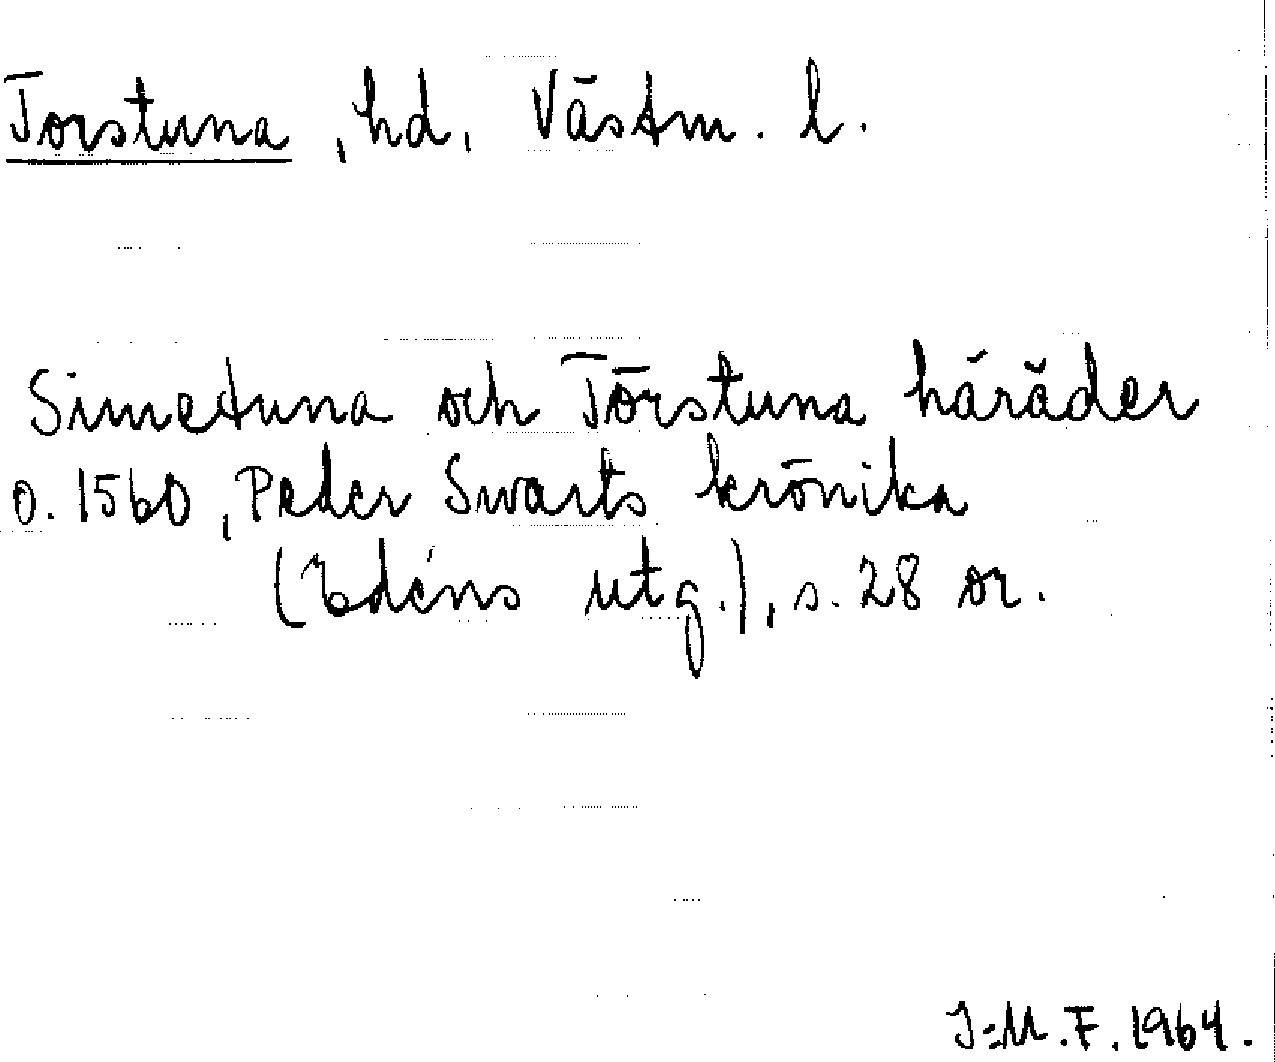 Torstuna, hd, Västm. l.
Simetuna och Törstuna häräder
o. 1560, Peder Swarts krönika
(Edéns utg.), s. 28 or.
J=M.F. 1964.